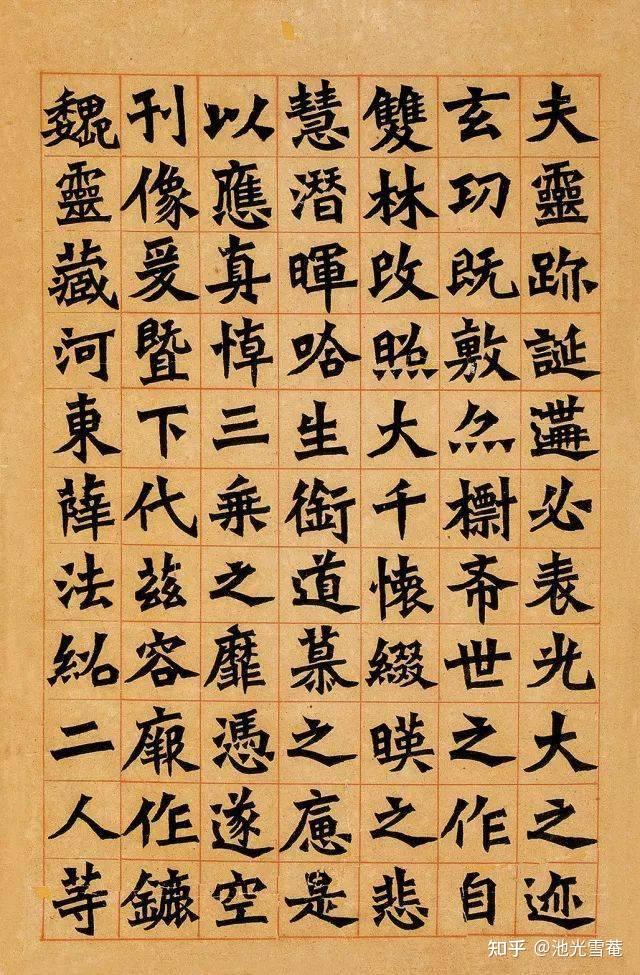 夫靈跡誕遘必表光大之迹
玄功既敷亦標希世之作自
雙林改照大千懷綴暎之悲
慧潛暉唅生銜道慕之痛是
以應真悼三乘之靡憑遂空
刊像爰暨下代茲容廏作鏕
魏靈藏河東薛法紹二人等
知乎 @池光雪菴